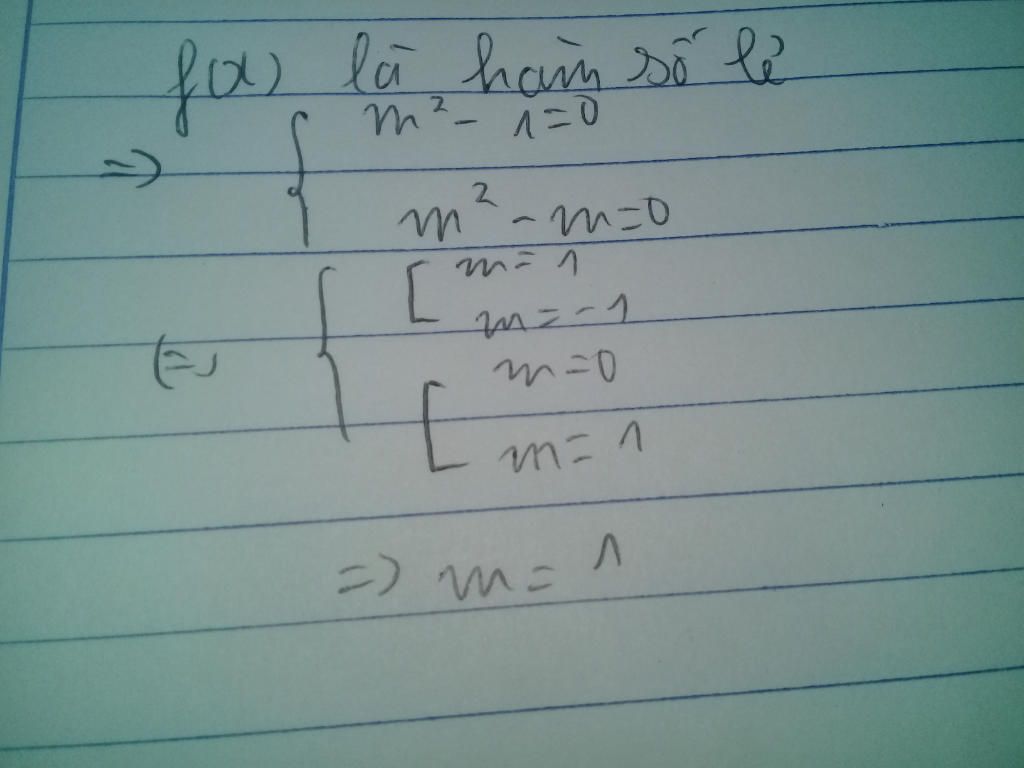 f(x) là hàm số lẻ
=> { m² - 1 = 0
m² - m = 0
<=> { [ m = 1
m = -1
m = 0
[ m = 1
=> m = 1